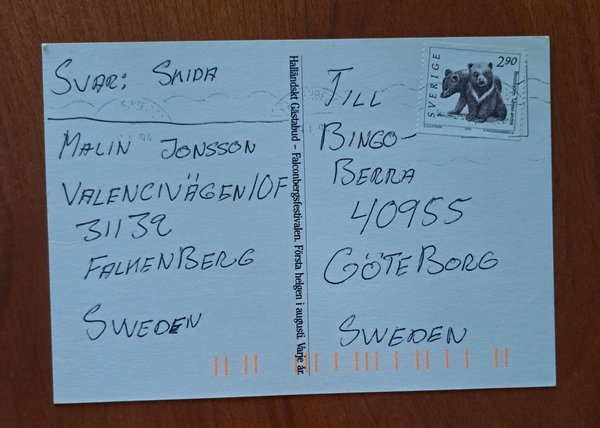 SVAR: SKIDA
MALIN JONSSON
VALENCIVÄGEN 10F
31139
FALKENBERG
SWEDEN
Halländskt Gästabud – Falconbergsfestivalen. Första helgen i augusti. Varje år.
TILL
BINGO-
BERRA
40955
GÖTEBORG
SWEDEN
SVERIGE
2.90